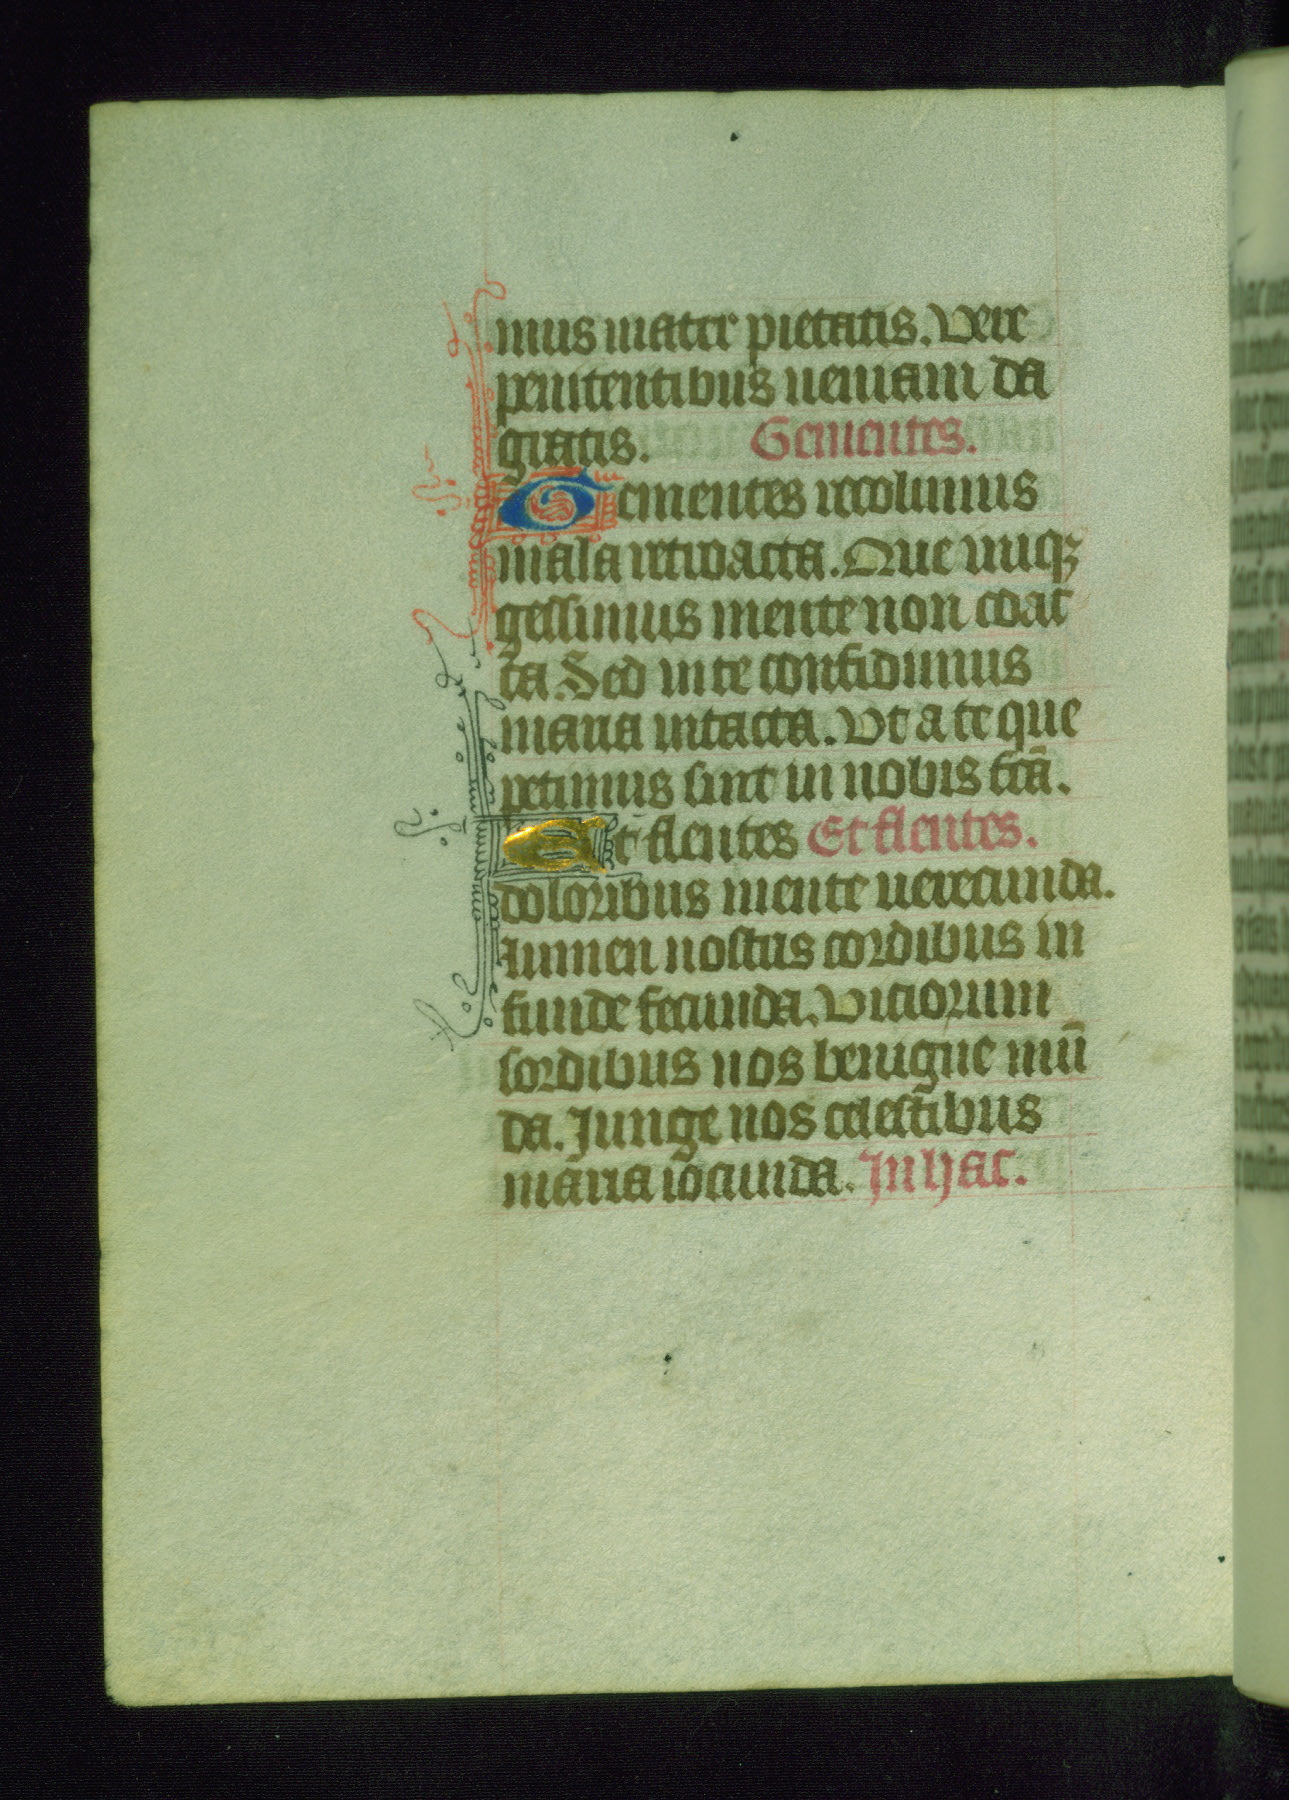 mus mater pietatis. Vere
penitentibus ueniam da
gratis. Gementes.
Gementes recolimus
mala retroacta. Que uuqꝫ
gessimus mente non coac
ta. Sed in te confidimus
maria intacta. Vt a te que
petimus sint in nobis fctā.
Et flentes Et flentes.
doloribus mente uerecunda.
Lumen nostris cordibus in
funde fecunda. Viciorum
sordibus nos benigne mū
da. Junge nos celestibus
maria iocunda. In hac.